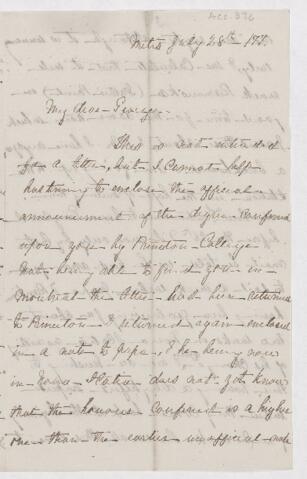 Metis July 28th
My dear George.
This is not intended
for a letter, but I cannot help
hastening to enclose the official
announcement of the degree conferred
upon you by Princeton College
not being able to find you in
Montreal the letter had been returned
to Princeton & returned again enclosed
in a note to papa, & he being now
in Nova Scotia does not yet know
that the honour conferred is a higher
one than the earlier unofficial note